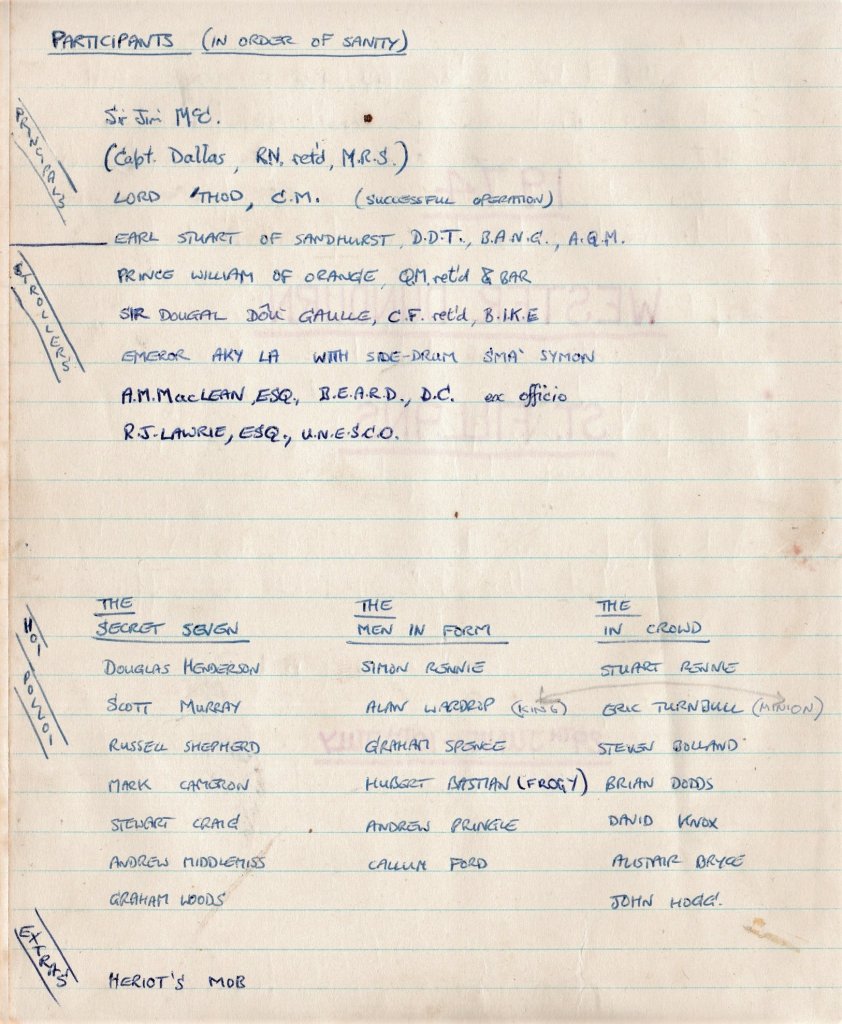 PARTICIPANTS (IN ORDER OF SANITY)
PRINCIPALS
Sir Jim McC.
(Capt. Dallas, RN. ret'd, M.R.S.)
LORD 'THOD, C.M. (SUCCESSFUL OPERATION)
STROLLERS
EARL STUART OF SANDHURST, D.D.T., B.A.N.G., A.Q.M.
PRINCE WILLIAM OF ORANGE, Q.M. ret'd & BAR
SIR DOUGAL DÔU GAULLE, C.F. ret'd, B.I.K.E
EMEROR AKY LA WITH SIDE-DRUM SMA' SYMON
A.M. MacLEAN, ESQ., B.E.A.R.D., D.C. ex officio
R.J. LAWRIE, ESQ., U.N.E.S.C.O.
HOI POLLOI
THE SECRET SEVEN
DOUGLAS HENDERSON
SCOTT MURRAY
RUSSELL SHEPHERD
MARK CAMERON
STEWART CRAIG
ANDREW MIDDLEMISS
GRAHAM WOODS
THE MEN IN FORM
SIMON RENNIE
ALAN WARDROP (KING)
GRAHAM SPENCE
HUBERT BASTIAN (FROGY)
ANDREW PRINGLE
CALLUM FORD
THE IN CROWD
STUART RENNIE
ERIC TURNBULL (MINION)
STEVEN BOLLAND
BRIAN DODDS
DAVID KNOX
ALISTAIR BRYCE
JOHN HOGG.
EXTRAS
HERIOT'S MOB
1974
WESTER DUNDURN
ST. FILLANS